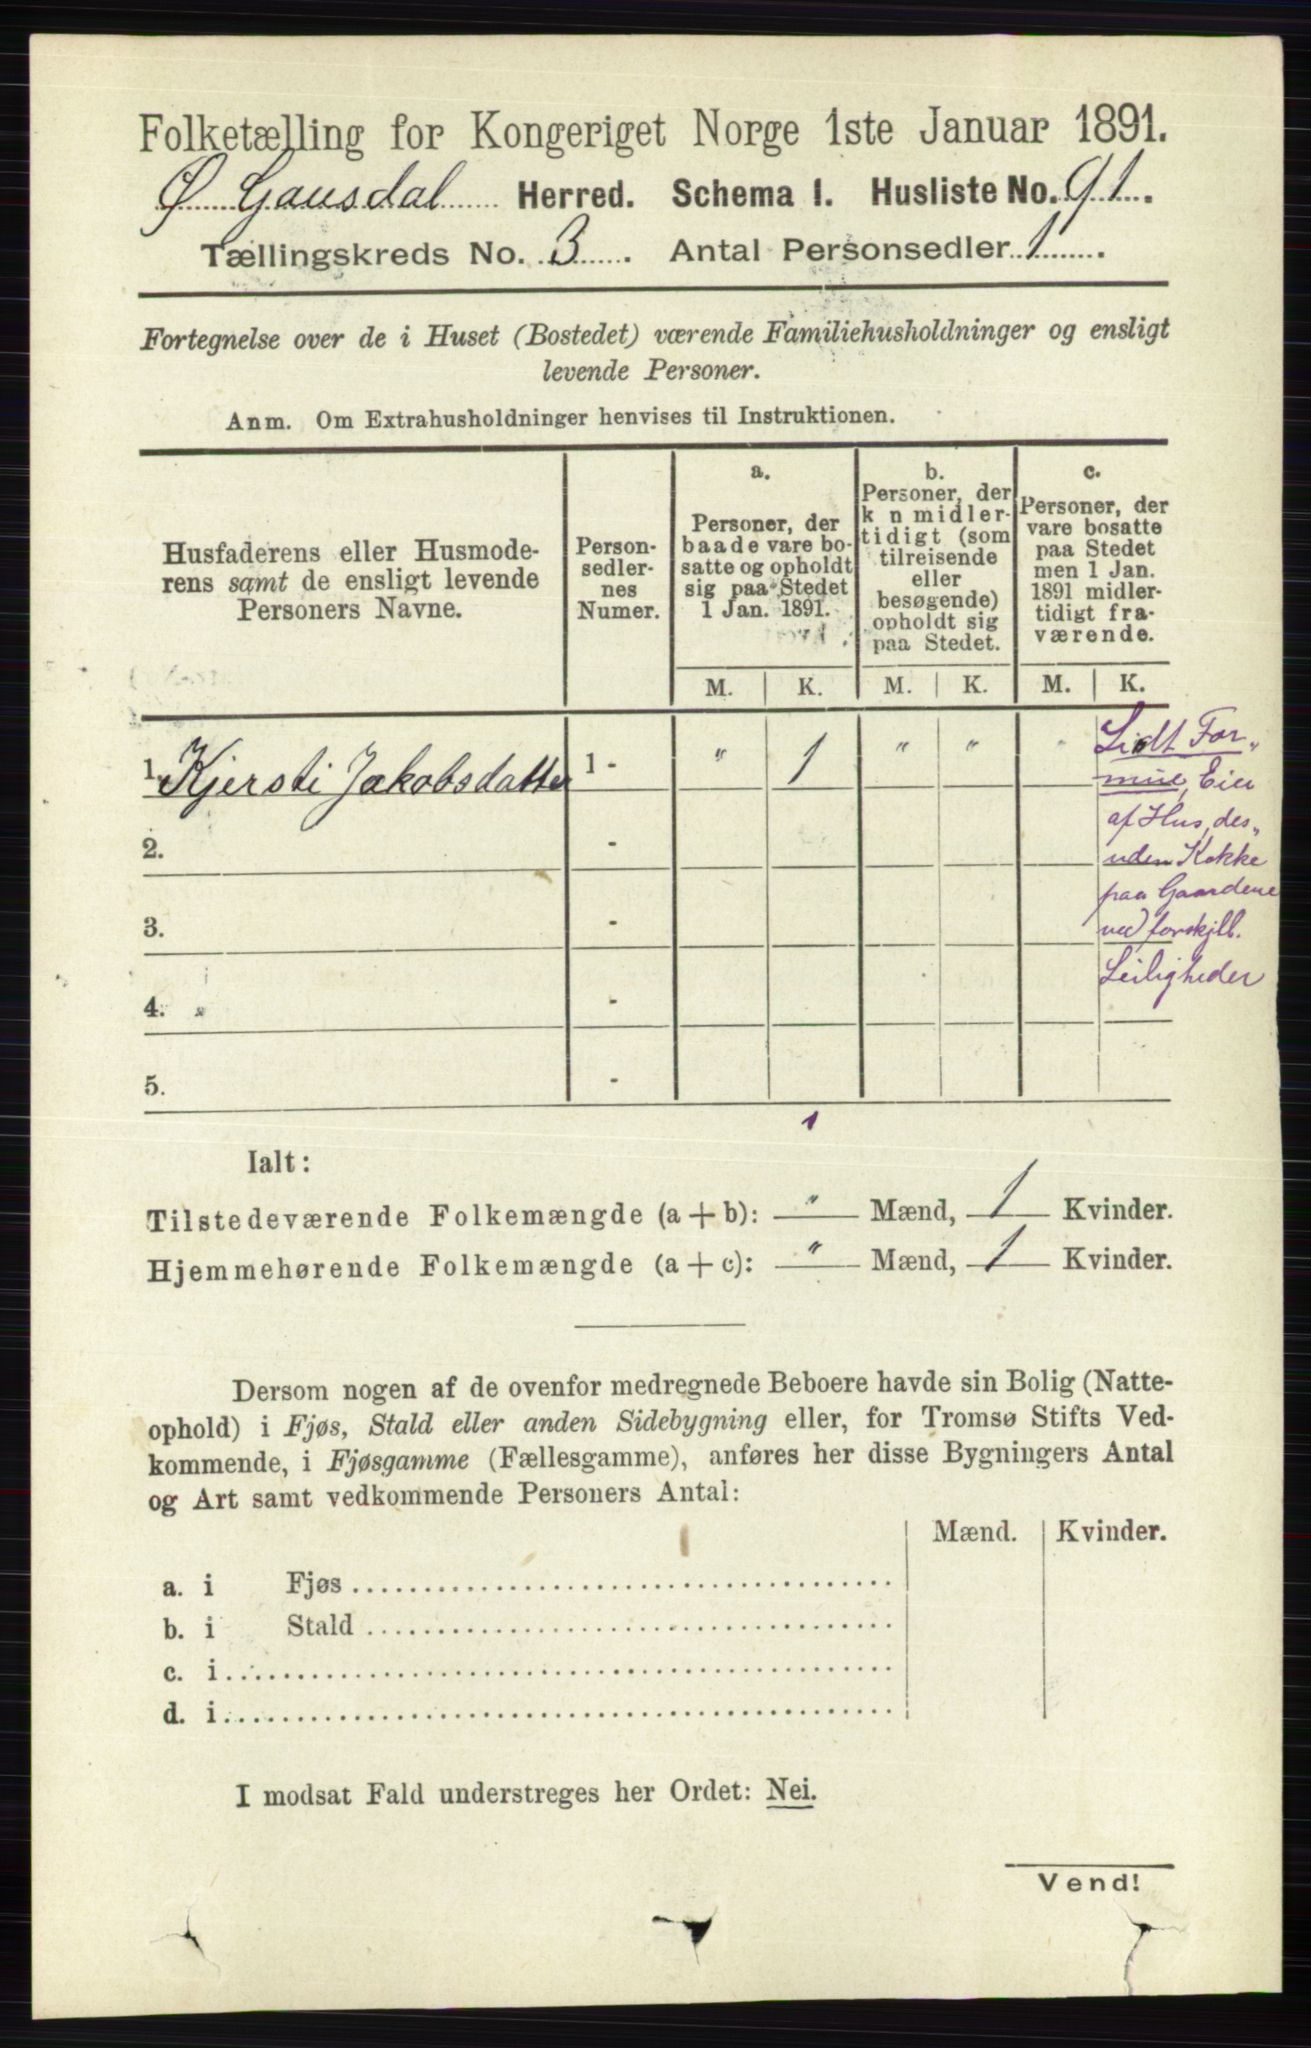 Folketælling for Kongeriget Norge 1ste Januar 1891.
Ø Gausdal Herred. Schema I. Husliste No. 91.
Tællingskreds No. 3. Antal Personsedler 1.
Fortegnelse over de i Huset (Bostedet) værende Familiehusholdninger og ensligt
levende Personer.
Anm. Om Extrahusholdninger henvises til Instruktionen.
Husfaderens eller Husmode-
rens samt de ensligt levende
Personers Navne.
Person-
sedler-
nes
Numer.
a.
Personer, der
baade vare bo-
satte og opholdt
sig paa Stedet
1 Jan. 1891.
b.
Personer, der
k n midler-
tidigt (som
tilreisende
eller
besøgende)
opholdt sig
paa Stedet.
c.
Personer, der
vare bosatte
paa Stedet
men 1 Jan.
1891 midler-
tidigt fra-
værende.
M. K. M. K. M. K.
1. Kjersti Jakobsdatter 1 - " 1 " " "
2. -
3. -
4. -
5. -
Lidt For„
mue, Eier
af Hus, des„
uden Kokke
paa Gaardene
ved forskjll.
Leiligheder
1
Ialt:
Tilstedeværende Folkemængde (a + b): " Mænd, 1 Kvinder.
Hjemmehørende Folkemængde (a + c): " Mænd, 1 Kvinder.
Dersom nogen af de ovenfor medregnede Beboere havde sin Bolig (Natte-
ophold) i Fjøs, Stald eller anden Sidebygning eller, for Tromsø Stifts Ved-
kommende, i Fjøsgamme (Fællesgamme), anføres her disse Bygningers Antal
og Art samt vedkommende Personers Antal:
Mænd. Kvinder.
a. i Fjøs
b. i Stald
c. i
d. i
I modsat Fald understreges her Ordet: Nei.
Vend!